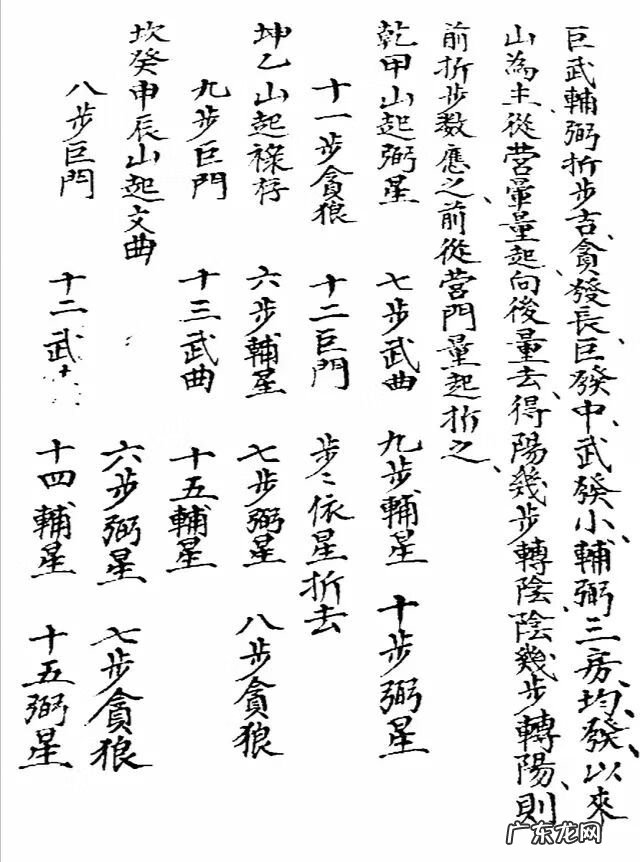 巨武輔弼折步吉貪發長巨發中武發小輔弼三房均發以來
山為主從營暈量起向後量去得陽幾步轉陰陰幾步轉陽則
前折步数應之前從營門量起折之
乾甲山起弼星 七步武曲 九步輔星 十步弼星
十一步貪狼 十二巨門 步々依星折去
坤乙山起祿存 六步輔星 七步弼星 八步貪狼
九步巨門 十三武曲 十五輔星
坎癸申辰山起文曲 六步弼星 七步貪狼
八步巨門 十二武 十四輔星 十五弼星
广东龙网